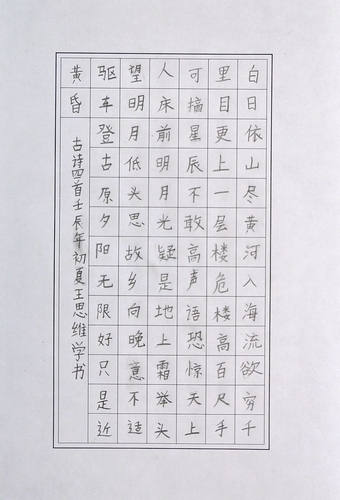 白日依山尽黄河入海流欲穷千
里目更上一层楼危楼高百尺手
可摘星辰不敢高声语恐惊天上
人床前明月光疑是地上霜举头
望明月低头思故乡向晚意不适
驱车登古原夕阳无限好只是近
黄昏
古诗四首壬辰年初夏王思维学书